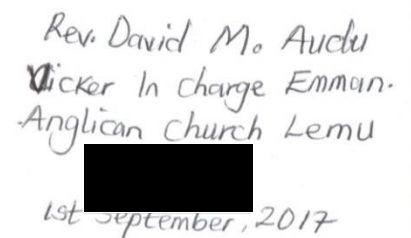 Rev. David M. Audu
Vicker In charge Emman.
Anglican church Lemu
1st September, 2017